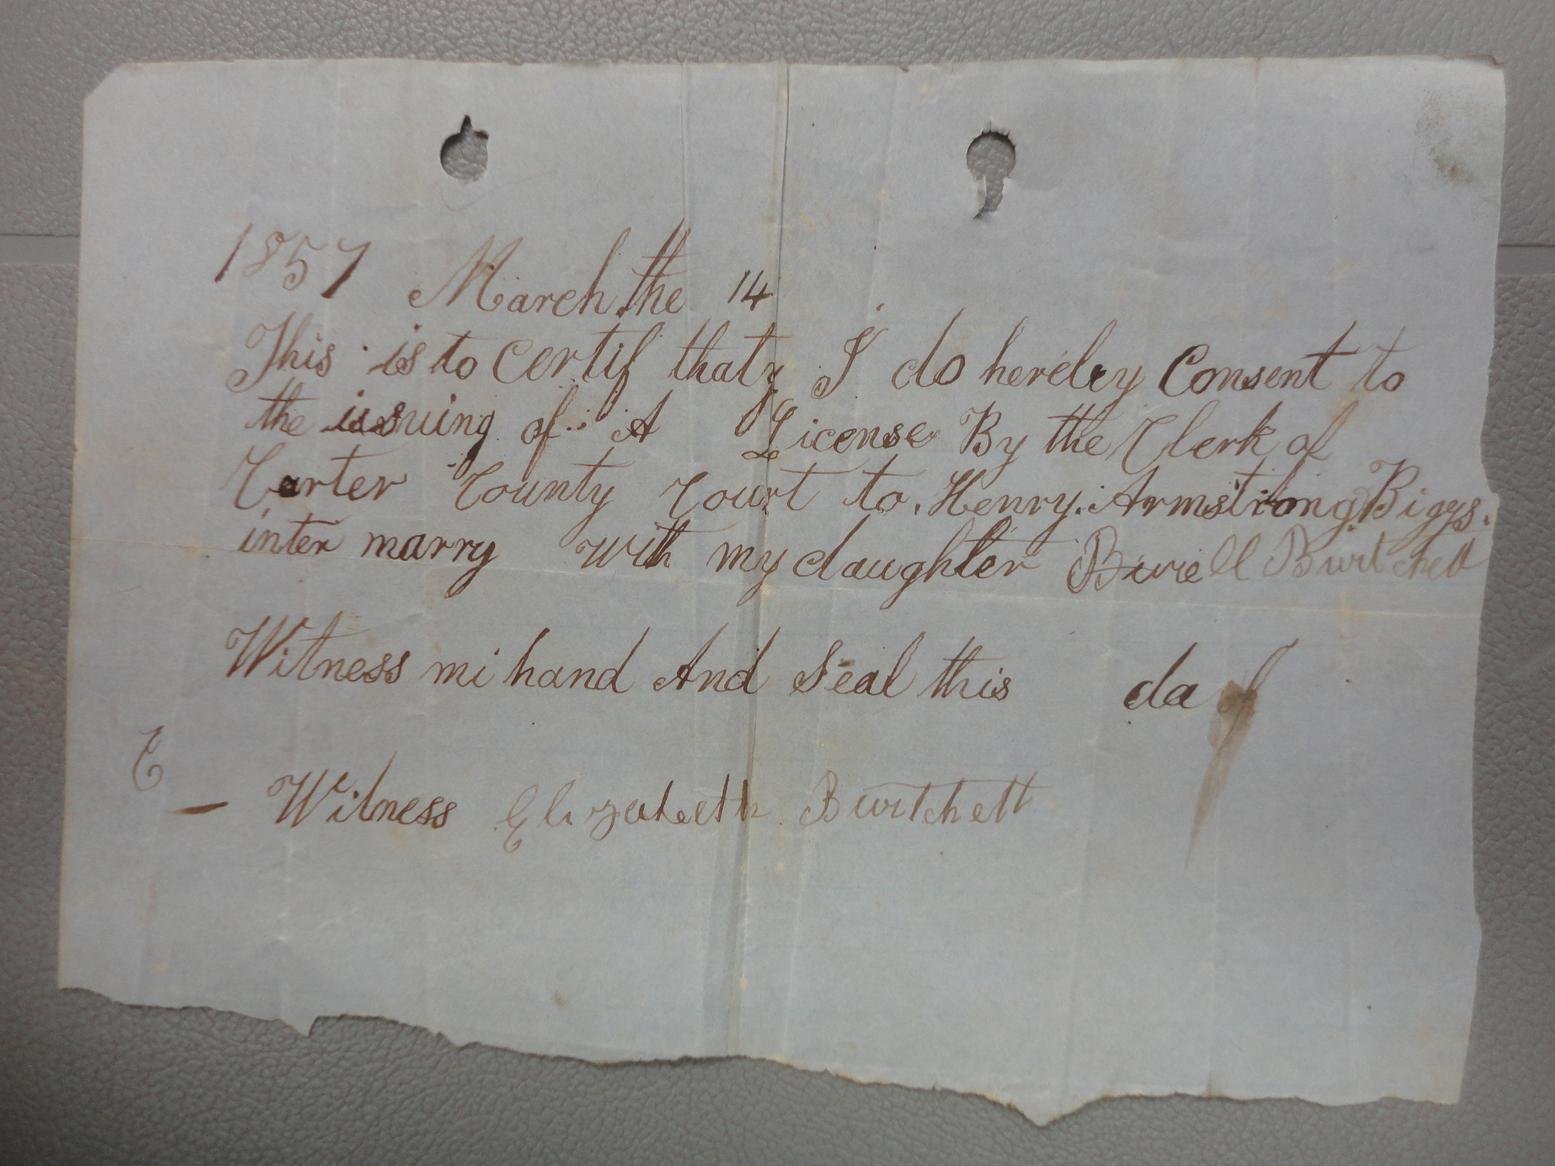 1857 March the 14
This is to certif thaty I do hereley Consent to
the issuing of A License By the Clerk of
Carter County Court to Henry Armstrong Biggs.
inter marry with my daughter Burell Burtchett
Witness mi hand And Seal this da of
E
– Witness Elizabeth Burtchett